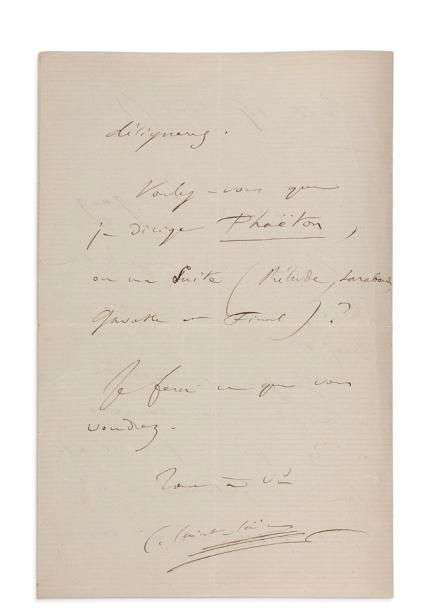 désignerez.
Voulez-vous que
je dirige Phaëton,
ou ma Suite (Prélude, Sarabande
Gavotte et Final) ?
Je ferai ce que vous
voudrez.
Tout à v
C. Saint-Saëns